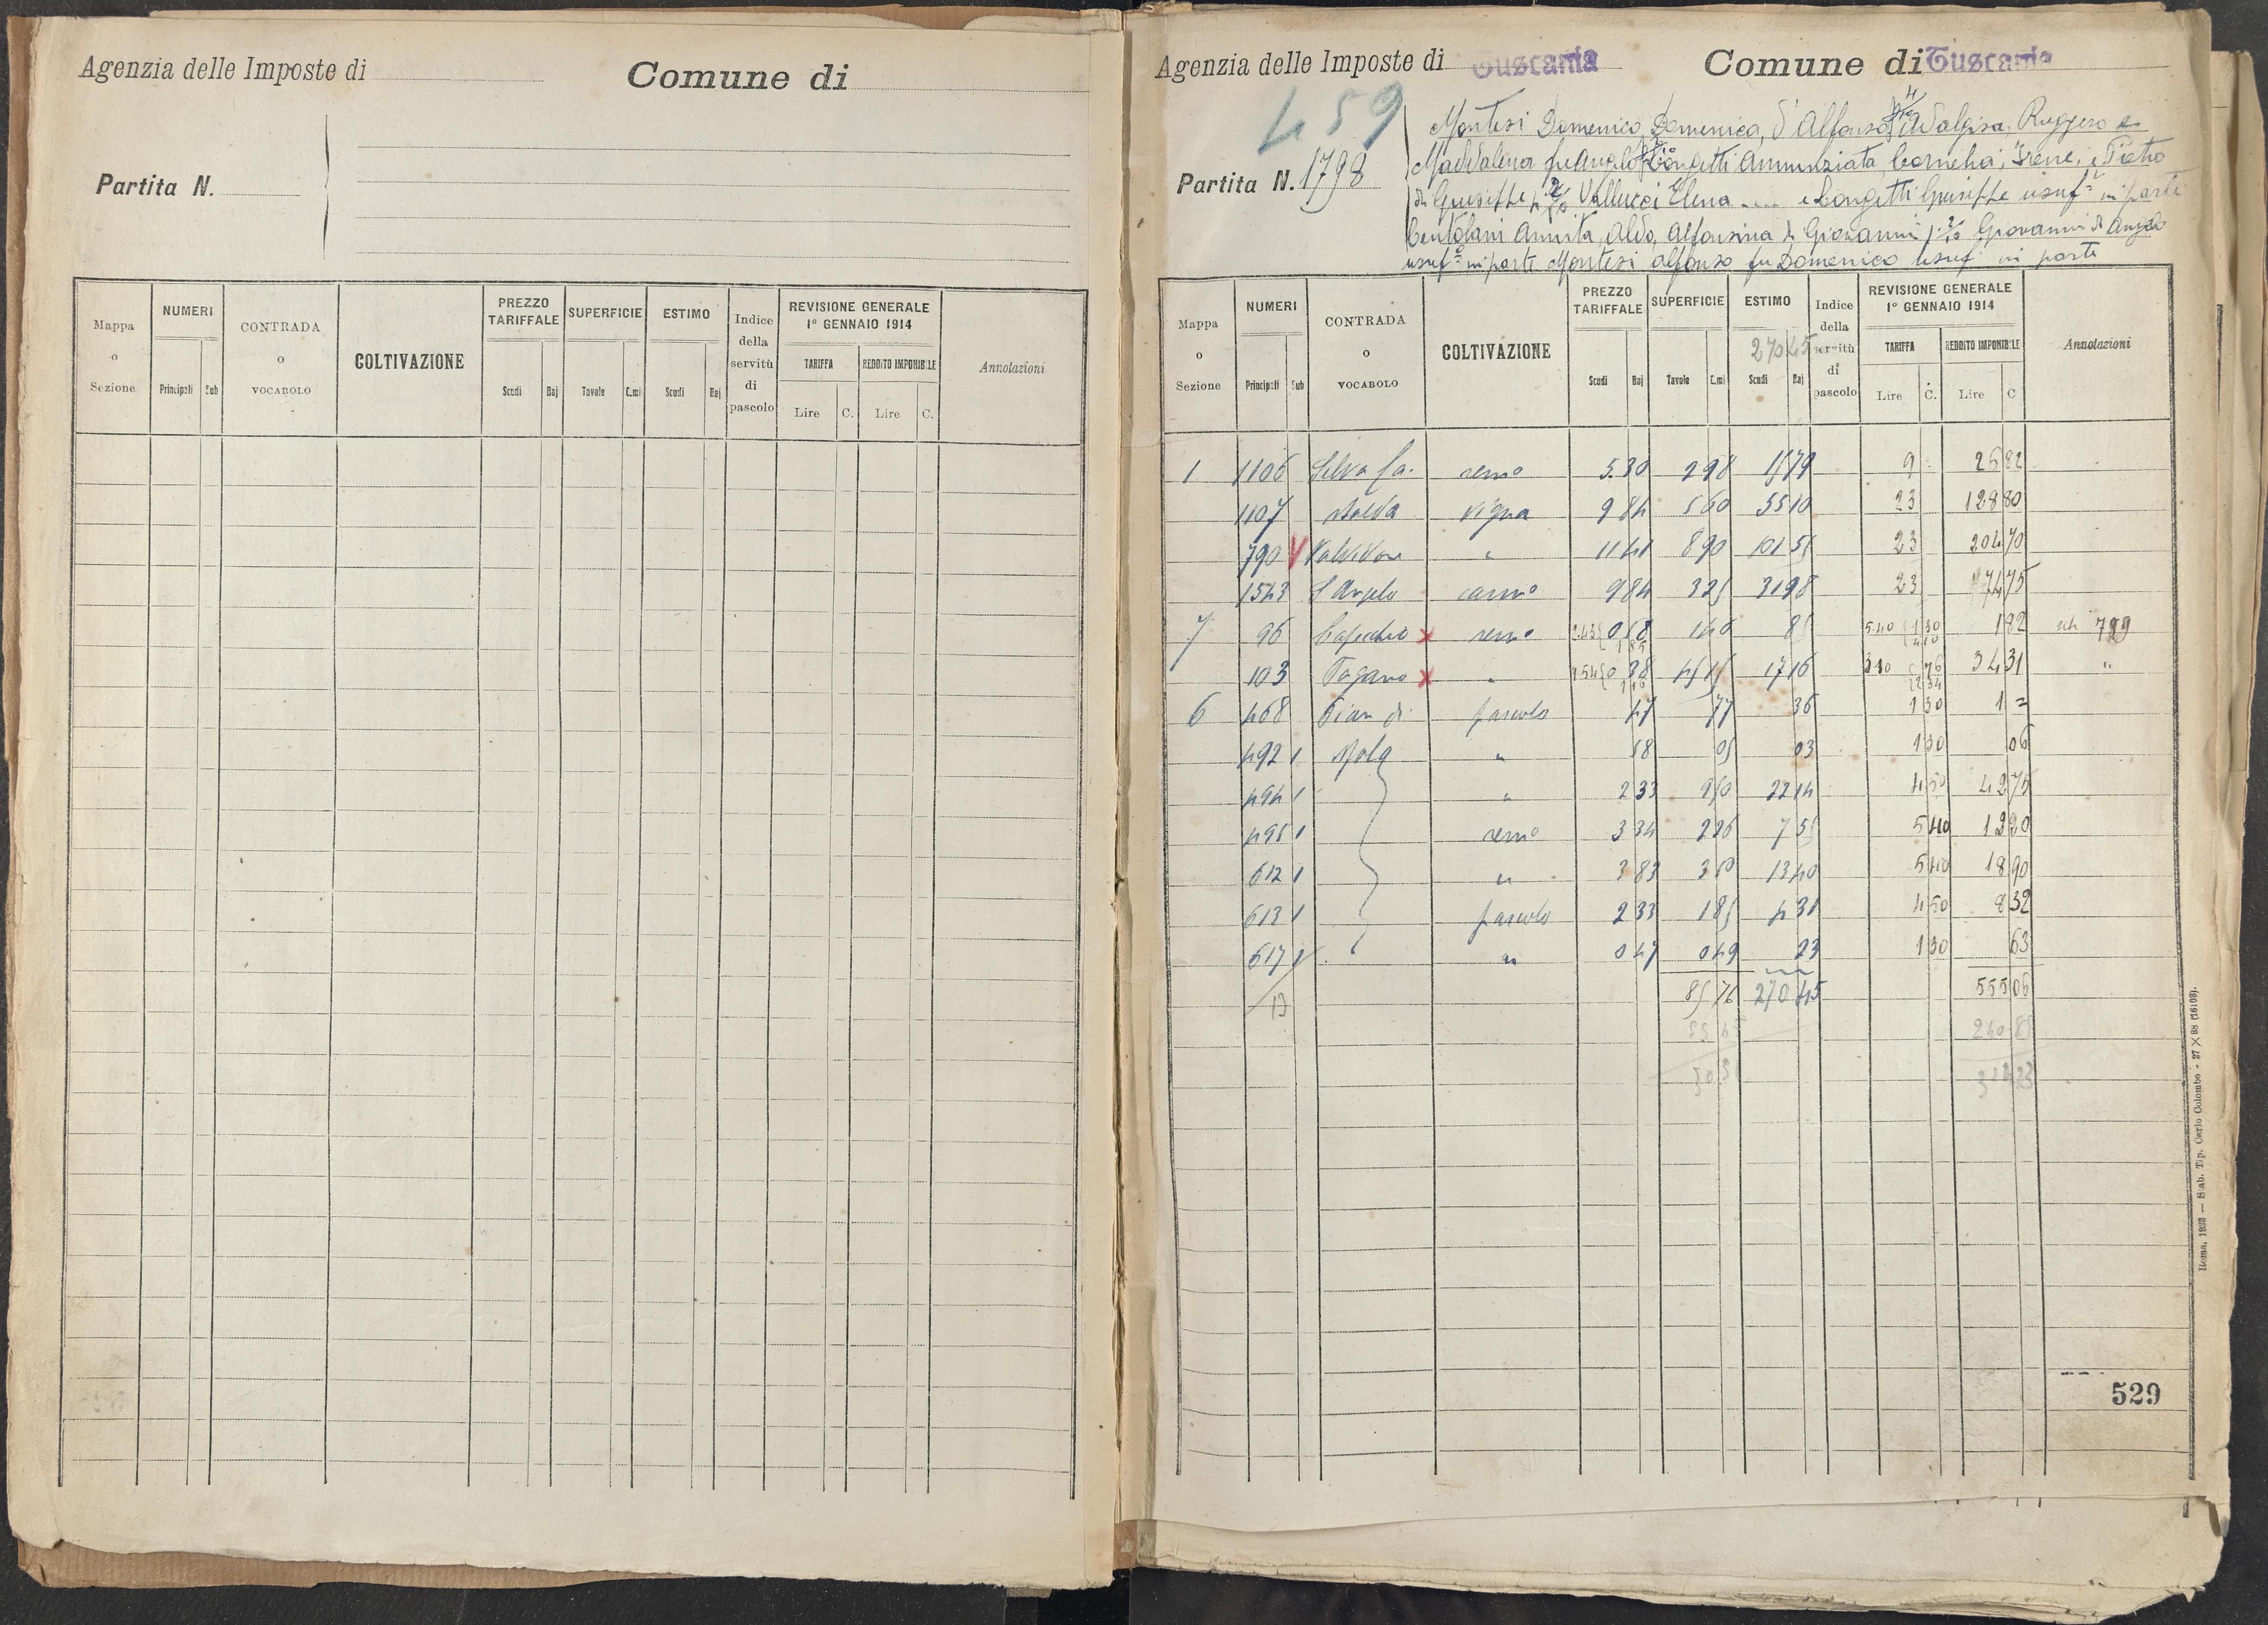 Agenzia delle Imposte di
Comune di
Partita N.
Mappa o Sezione
NUMERI
Principali Sub
CONTRADA o VOCABOLO
COLTIVAZIONE
PREZZO TARIFFALE
Scudi Baj
SUPERFICIE
Tavole C.mi
ESTIMO
Scudi Baj
Indice della servitù di pascolo
REVISIONE GENERALE
1º GENNAIO 1914
TARIFFA REDDITO IMPONIBILE
Lire C. Lire C.
Annotazioni
Agenzia delle Imposte di Tuscania
Comune di Tuscania
459
Partita N. 1798
Montesi Domenico, Domenica, d'Alfonso Adalgisa, Ruggero e
Maddalena fu Angelo Longetti Annunziata, Cornelia, Irene, e Pietro
di Giuseppe Vallucci Elena .... e Longetti Giuseppe usuf in parte
Centolani Annita, Aldo, Alfonsina di Giovanni Giovanni di Angelo
usuf in parte Montesi Alfonso fu Domenico usuf in parte
Mappa o Sezione
NUMERI
Principali Sub
CONTRADA o VOCABOLO
COLTIVAZIONE
PREZZO TARIFFALE
Scudi Baj
SUPERFICIE
Tavole C.mi
ESTIMO
270 45
Scudi Baj
Indice della servitù di pascolo
REVISIONE GENERALE
1º GENNAIO 1914
TARIFFA REDDITO IMPONIBILE
Lire C. Lire C
Annotazioni
1 1106 Selva semo 5 30 2 98 15 79 9 26 82
1107 vigna 9 84 5 60 55 10 23 128 80
790 " 11 41 8 90 101 55 23 204 70
1543 S Angelo 9 84 3 25 31 98 23 74 75
7 96 semo 1 40 85 5 40 1 30 1 92 799
103 " 45 15 17 16 34 31 "
6 468 Pian di pascolo 47 77 36 1 30 1 =
492 1 Mola " 58 05 03 1 30 06
494 1 " 2 33 9 50 22 14 4 50 42 75
495 1 semo 3 34 2 26 7 55 5 40 12 20
612 1 " 3 83 3 50 13 40 5 40 18 90
613 1 pascolo 2 33 1 85 4 31 4 50 8 32
617 1 " 0 47 0 49 23 1 30 63
13 85 76 270 45 555 06
240 83
314 23
529
Roma, 1933 — Stab. Tip. Carlo Colombo - 27 × 88 (16108).